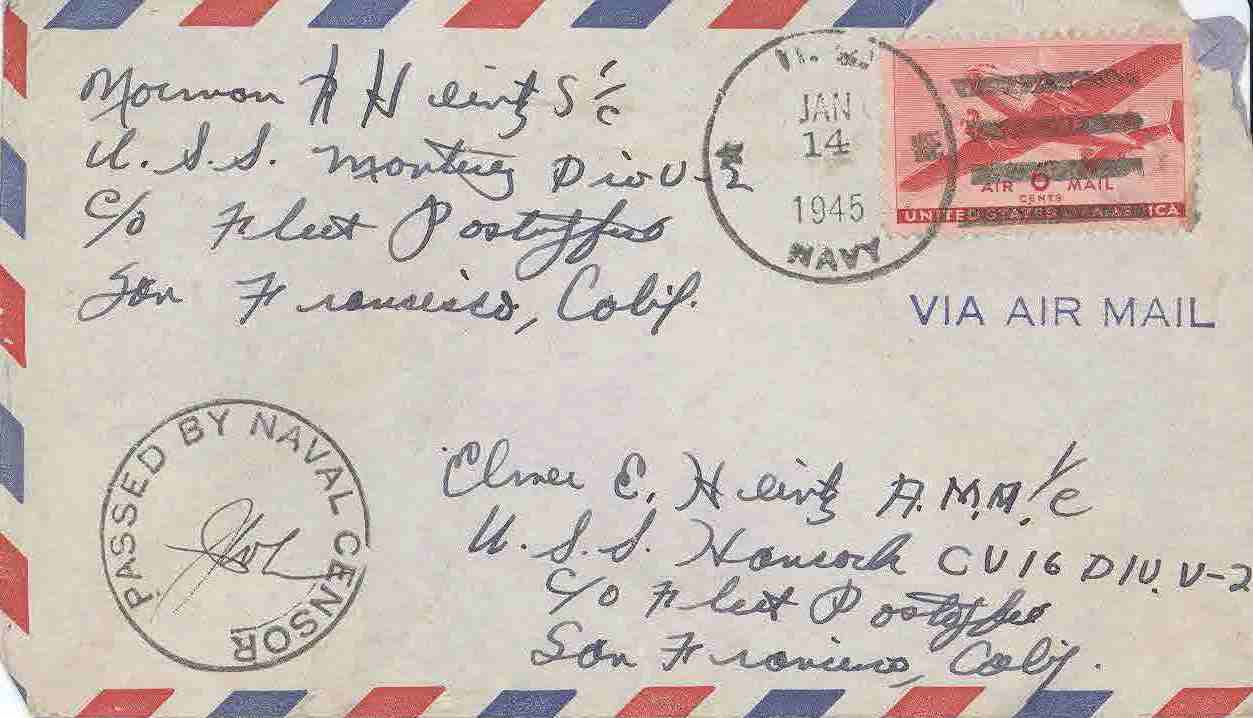 Norman A Heintz S 1/c
U.S.S. Monterey Div V-2
c/o Fleet Postoffice
San Francisco, Calif.
U. S.
JAN
14
1945
NAVY
AIR 6 MAIL
CENTS
UNITED STATES OF AMERICA
VIA AIR MAIL
PASSED BY NAVAL CENSOR
Elmer E. Heintz A.M.M. 1/c
U.S.S. Hancock CV16 DIV. V-2
c/o Fleet Postoffice
San Francisco, Calif.